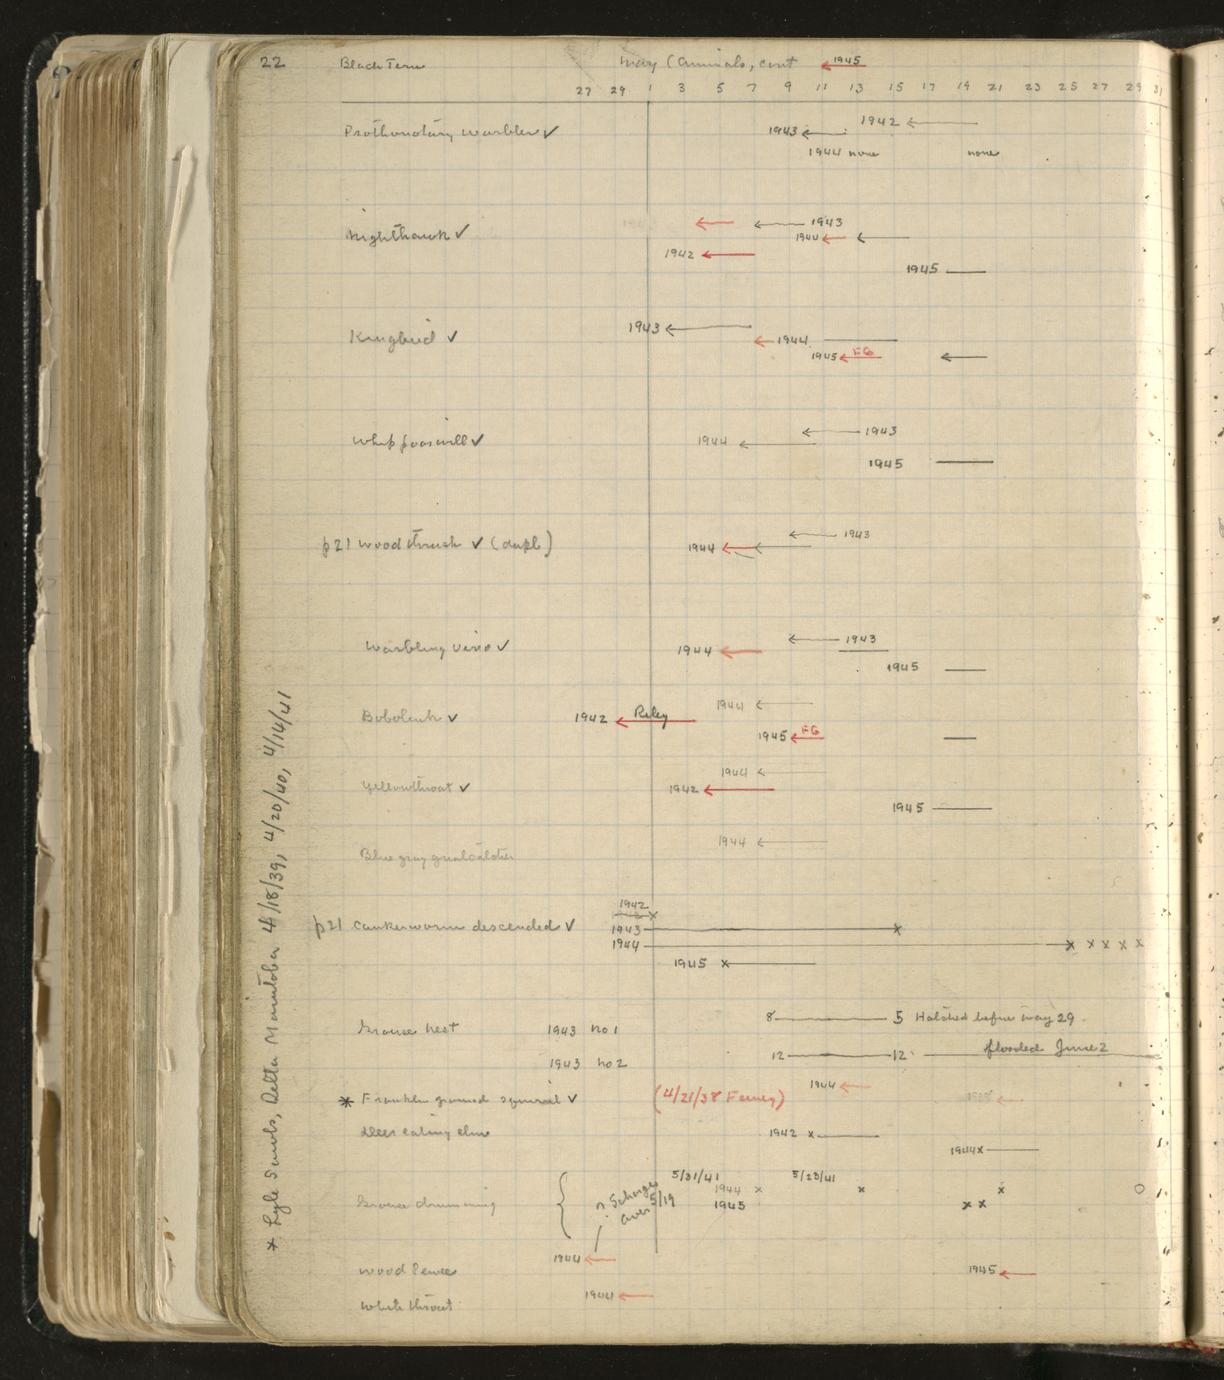 22 Black Tern May (Arrivals, cont 1945
27 29 1 3 5 7 9 11 13 15 17 19 21 23 25 27 29 31
Prothonotary warbler ✓ 1943 1942
1944 none none
Nighthawk ✓ 1943
1944
1942
1945
Kingbird ✓ 1943
1944
1945 FG
Whip poorwill ✓ 1943
1944
1945
p21 wood thrush ✓ (dupl) 1943
1944
Warbling vireo ✓ 1943
1944
1945
Bobolink ✓ 1944
1942 Riley
1945 FG
Yellowthroat ✓ 1944
1942
1945
Blue gray gnatcatcher 1944
p21 Cankerworm descended ✓ 1942
1943 x
1944 x x x x x
1945 x
Grouse nest 1943 no 1 8 5 Hatched before May 29
1943 no 2 12 12 flooded June 2
* Franklin ground squirrel ✓ (4/21/38 Feeney) 1944
Deer eating elm 1942 x
1944 x
Grouse drumming 5/31/41 5/23/41
1944 x x x o
1945 x x
5/19
wood Pewee 1944 1945
White throat 1944
* Lyle Sowls, Delta Manitoba 4/18/39, 4/20/40, 4/14/41